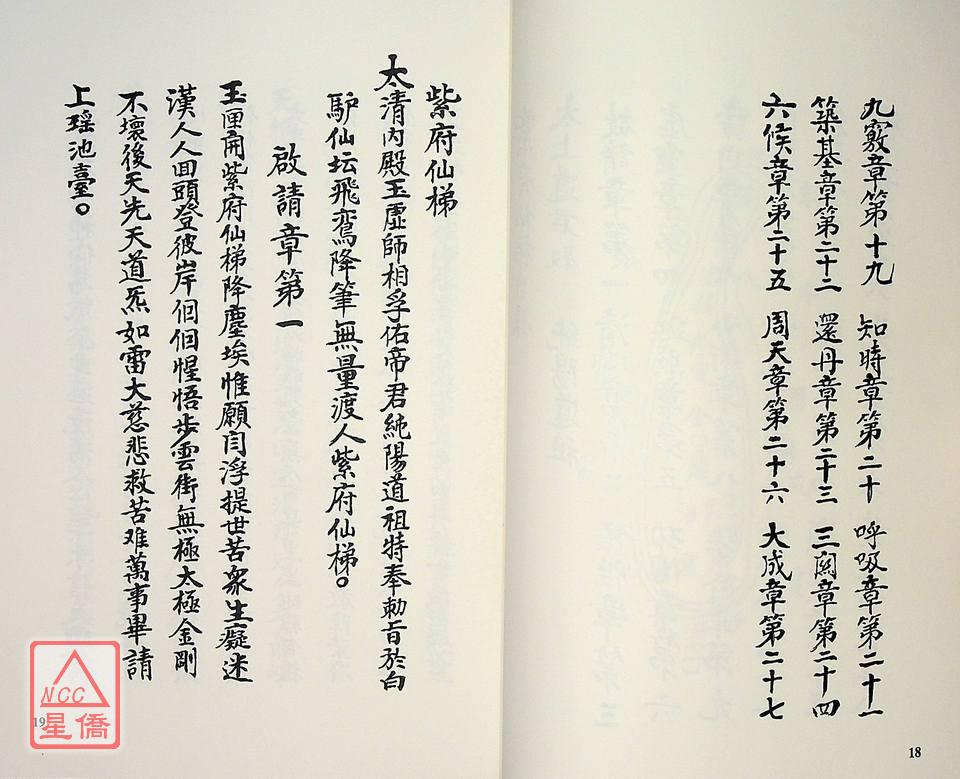 九竅章第十九　知時章第二十　呼吸章第二十一
築基章第二十二　還丹章第二十三　三關章第二十四
六候章第二十五　周天章第二十六　大成章第二十七
18
紫府仙梯
太清內殿玉虛師相孚佑帝君純陽道祖特奉勅旨於白
馿仙坛飛鸾降筆無量渡人紫府仙梯。
啟請章第一
玉匣開紫府仙梯降塵埃惟願閆浮提世苦衆生癡迷
漢人人囬頭登彼岸佪佪惺悟步雲街無極太極金剛
不壞後天先天道炁如雷大慈悲救苦难萬事畢請
上瑶池臺。
19
NCC
星僑